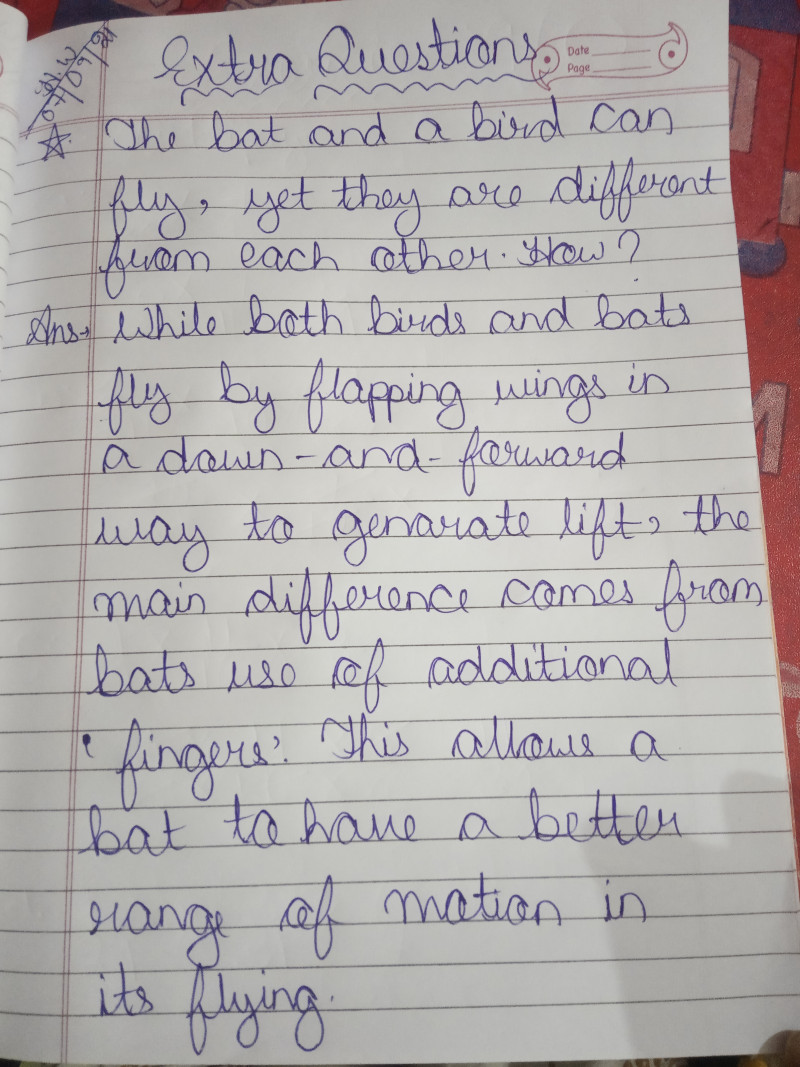 Extra Questions
Date
Page
The bat and a bird can
fly, yet they are different
from each other. How?
Ans→ While both birds and bats
fly by flapping wings in
a down-and-forward
way to genarate lift, the
main difference comes from
bats use of additional
'fingers'. This allows a
bat to have a better
range of motion in
its flying.